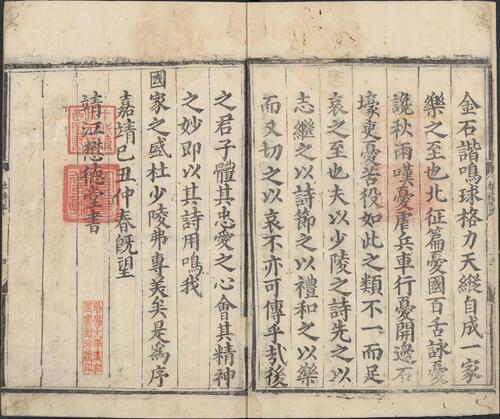 金石諧鳴球格力天縱自成一家
樂之至也北征篇憂國百舌詠憂
讒秋雨嘆憂虐兵車行憂開邊石
壕吏憂苦役如此之類不一而足
哀之至也夫以少陵之詩先之以
志繼之以詩節之以禮和之以樂
而又切之以哀不亦可傳乎㢤後
之君子體其忠愛之心會其精神
之妙即以其詩用鳴我
國家之盛杜少陵弗專美矣是爲序
嘉靖己丑仲春旣望
靖江懋德堂書
哈佛大學漢和
圖書館珍藏印